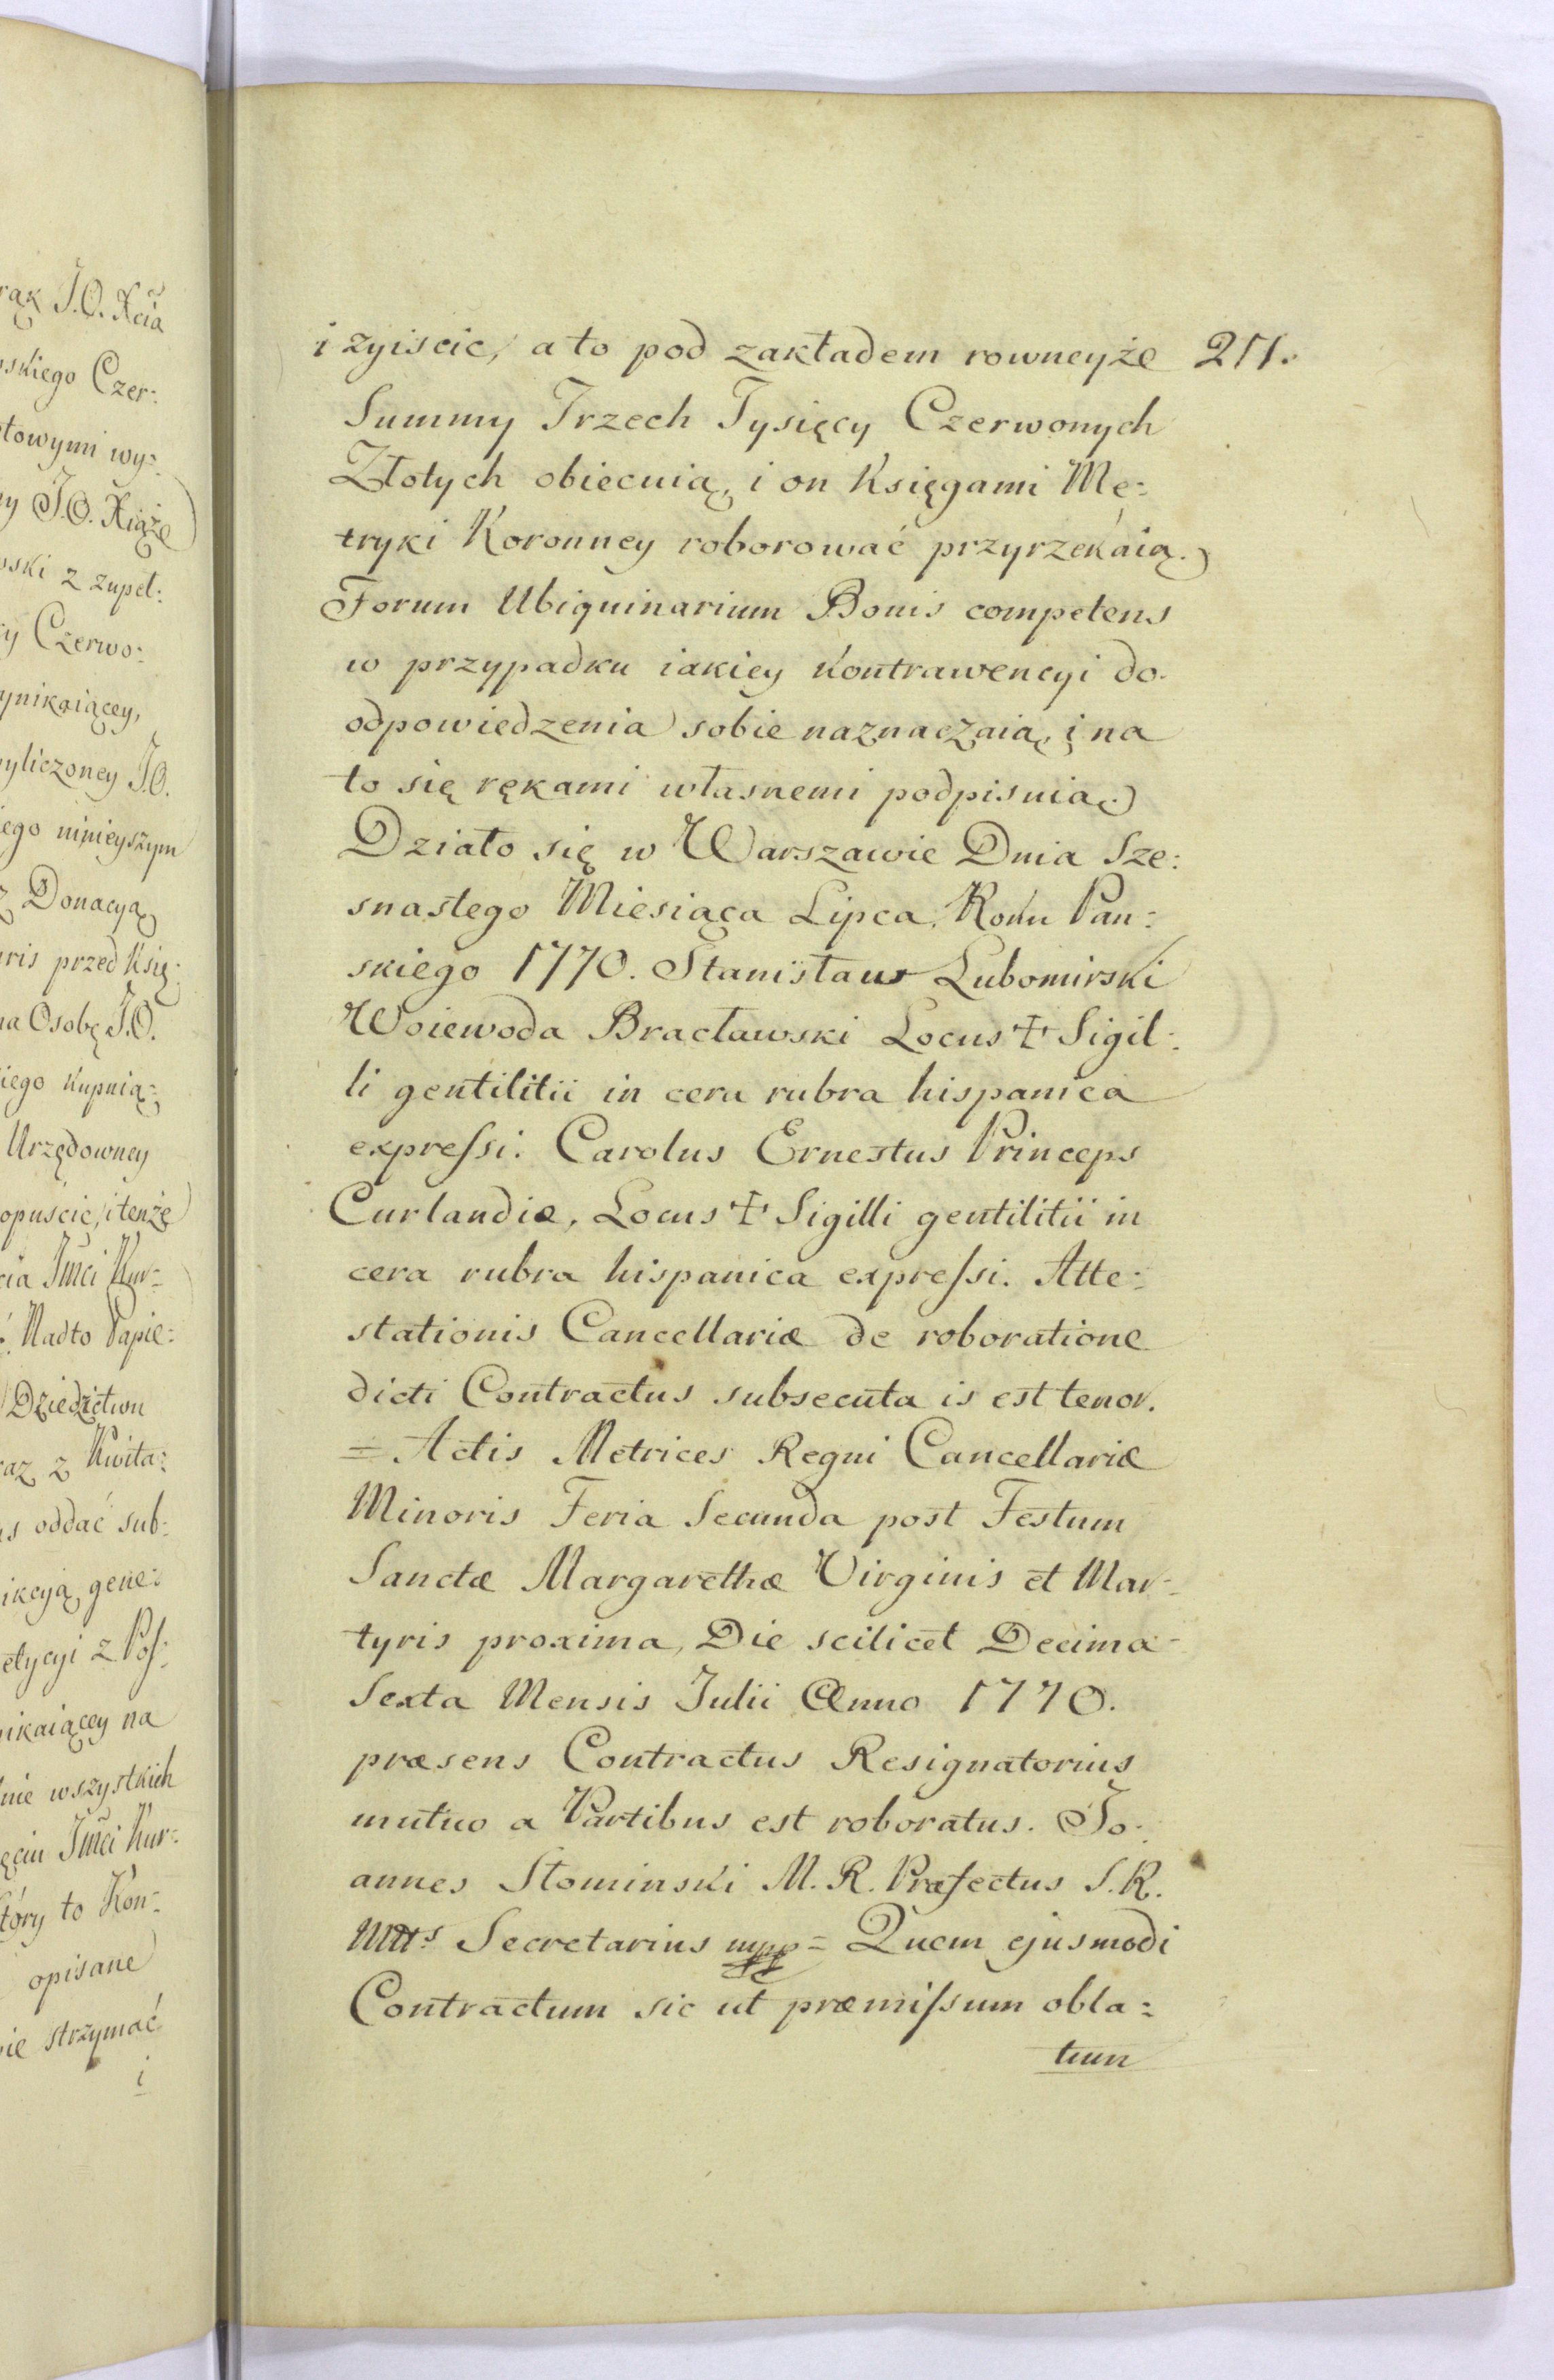 rąk J.O. Xcia
skiego Czer:
towymi wy:
y J.O. Xiąże
ski z zupeł:
y Czerwo:
ynikaiącey,
yliczoney J.O.
ego ninieyszym
z Donacyą
ris przed Się:
na Osobę J.O.
iego kupnią:
Urzędowney
opuścić, i tenże
cia Jmci Kur:
Nadto Papie:
Dziedzictwu
raz z Kwita:
s oddać sub:
ikcyą gene:
etycyi z Pos:
nikaiącey na
nie wszystkich
ęciu Jmci Kur:
tóry to Kon:
opisane
ie strzymać
i
i zyiscic, a to pod zakładem rowneyże 271.
Summy Trzech Tysięcy Czerwonych
Złotych obiecuią, i on Księgami Me:
tryki Koronney roborować przyrzekaią.
Forum Ubiquinarium Bonis competens
w przypadku iakiey kontrawencyi do
odpowiedzenia sobie naznaczaią, i na
to się rękami własnemi podpisuią.
Działo się w Warszawie Dnia Sze:
snastego Miesiąca Lipca, Roku Pan:
skiego 1770. Stanisłaus Lubomirski
Woiewoda Bracławski Locus ☩ Sigil:
li gentilitii in cera rubra hispanica
expressi. Carolus Ernestus Princeps
Curlandiæ, Locus ☩ Sigilli gentilitii in
cera rubra hispanica expressi. Atte:
stationis Cancellariæ de roboratione
dicti Contractus subsecuta is est tenor.
= Actis Metrices Regni Cancellariæ
Minoris Feria Secunda post Festum
Sanctæ Margarethæ Virginis et Mar:
tyris proxima, Die scilicet Decima
Sexta Mensis Julii Anno 1770.
præsens Contractus Resignatorius
mutuo a Partibus est roboratus. Jo:
annes Słominski M. R. Præfectus S. R.
Mtts Secretarius mpp = Quem ejusmodi
Contractum sic ut præmissum obla:
tum